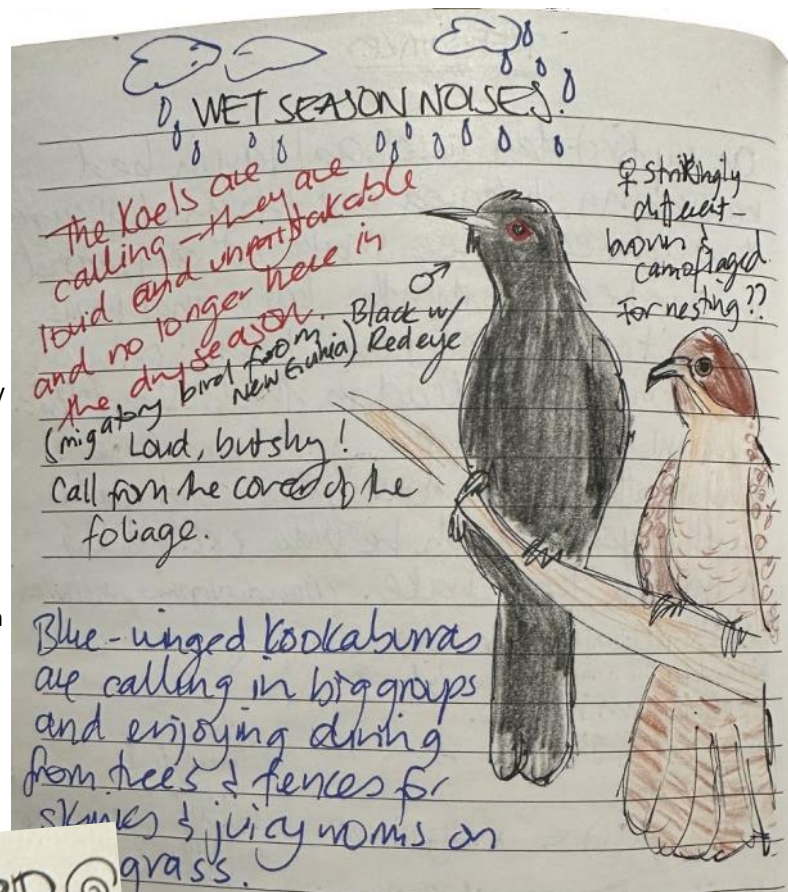 WET SEASON NOISES!
The Koels are
calling - they are
loud and unmistakable
and no longer here in
the dry season.
(migatory bird from
New Guinia)
Loud, but shy!
Call from the cover of the
foliage.
♂
Black w/
Red eye
♀ strikingly
different -
brown &
camoflaged
for nesting??
Blue-winged Kookaburras
are calling in big groups
and enjoying diving
from trees & fences for
skinks & juicy worms on
grass.